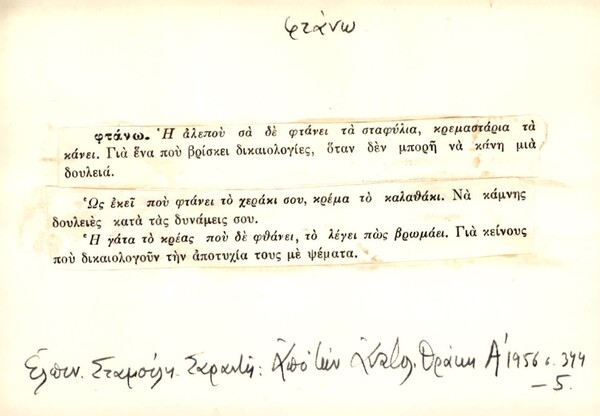 φτάνω
φτάνω. Ἡ ἀλεποὺ σὰ δὲ φτάνει τὰ σταφύλια, κρεμαστάρια τὰ
κάνει. Γιὰ ἕνα ποὺ βρίσκει δικαιολογίες, ὅταν δὲν μπορῆ νὰ κάνη μιὰ
δουλειά.
Ὣς ἐκεῖ ποὺ φτάνει τὸ χεράκι σου, κρέμα τὸ καλαθάκι. Νὰ κάμνης
δουλειὲς κατὰ τὰς δυνάμεις σου.
Ἡ γάτα τὸ κρέας ποὺ δὲ φθάνει, τὸ λέγει πὼς βρωμάει. Γιὰ κείνους
ποὺ δικαιολογοῦν τὴν ἀποτυχία τους μὲ ψέματα.
Ἐλπιν. Σταμούλη Σαραντῆ: Ἀπὸ τὴν Ἀνατολ. Θράκη Α' 1956 σ. 344
-5.